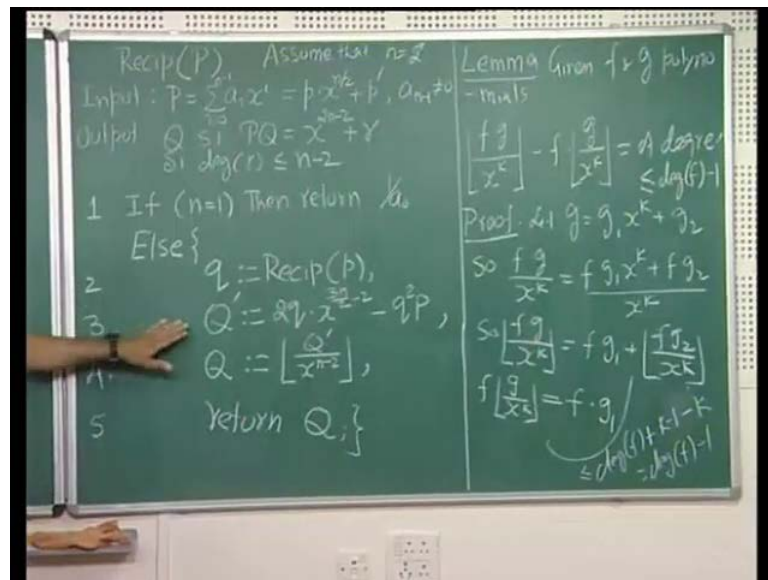 Recip(P) Assume that n=2
Input: P = Σ a_i x^i = p·x^{n/2} + p', a_{n-1} ≠ 0
Output Q st PQ = x^{2n-2} + r
st deg(r) ≤ n-2
1 If (n=1) Then return 1/a₀
Else{
2 q := Recip(p),
3 Q' := 2q·x^{3n/2-2} - q²P,
4. Q := ⌊Q'/x^{n-2}⌋,
5 return Q;}
Lemma Given f & g polyno
-mials
⌊fg/x^k⌋ - f·⌊g/x^k⌋ = A degree
≤ deg(f)-1
Proof. Let g = g₁x^k + g₂
so fg/x^k = (fg₁x^k + fg₂)/x^k
So ⌊fg/x^k⌋ = fg₁ + ⌊fg₂/x^k⌋
f⌊g/x^k⌋ = f·g₁
≤ deg(f)+k-1-k
= deg(f)-1